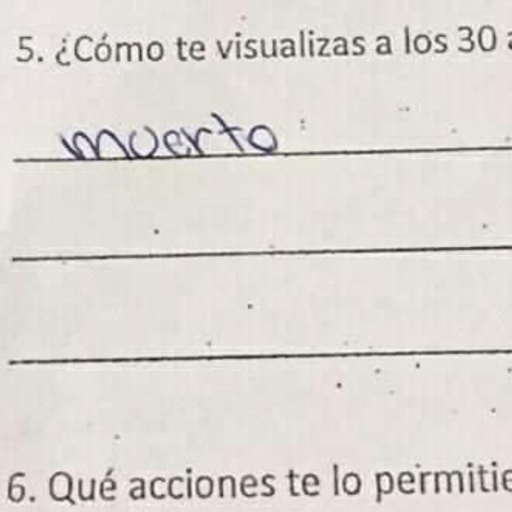 5. ¿Cómo te visualizas a los 30
muerto
6. Qué acciones te lo permitie